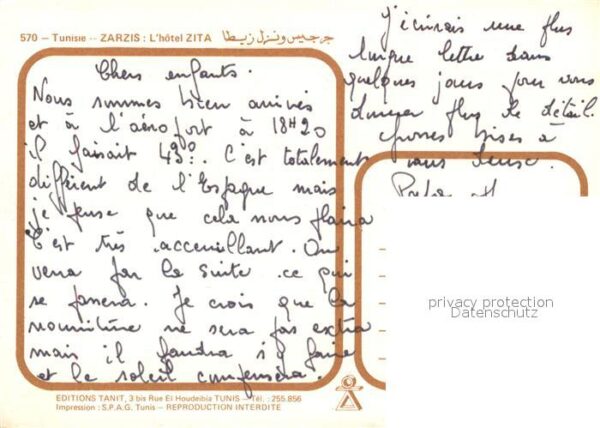 570 – Tunisie -- ZARZIS : L'hôtel ZITA جرجيس ونزل زيطا
Chers enfants.
Nous sommes bien arrivés
et à l'aéroport à 18H20
il faisait 43°. C'est totalement
différent de l'Espagne mais
je pense que cela nous plaira
C'est très acceuillant. On
verra par la suite ce qui
se passera. Je crois que la
nourriture ne sera pas extra
mais il faudra s'y faire
et le soleil compensera.
J'écrirais une plus
longue lettre dans
quelques jours pour vous
donner plus de détail.
Grosses bises à
vous deux.
privacy protection
Datenschutz
EDITIONS TANIT, 3 bis Rue El Houdeibia TUNIS – Tél. : 255.856
Impression : S.P.A.G. Tunis – REPRODUCTION INTERDITE